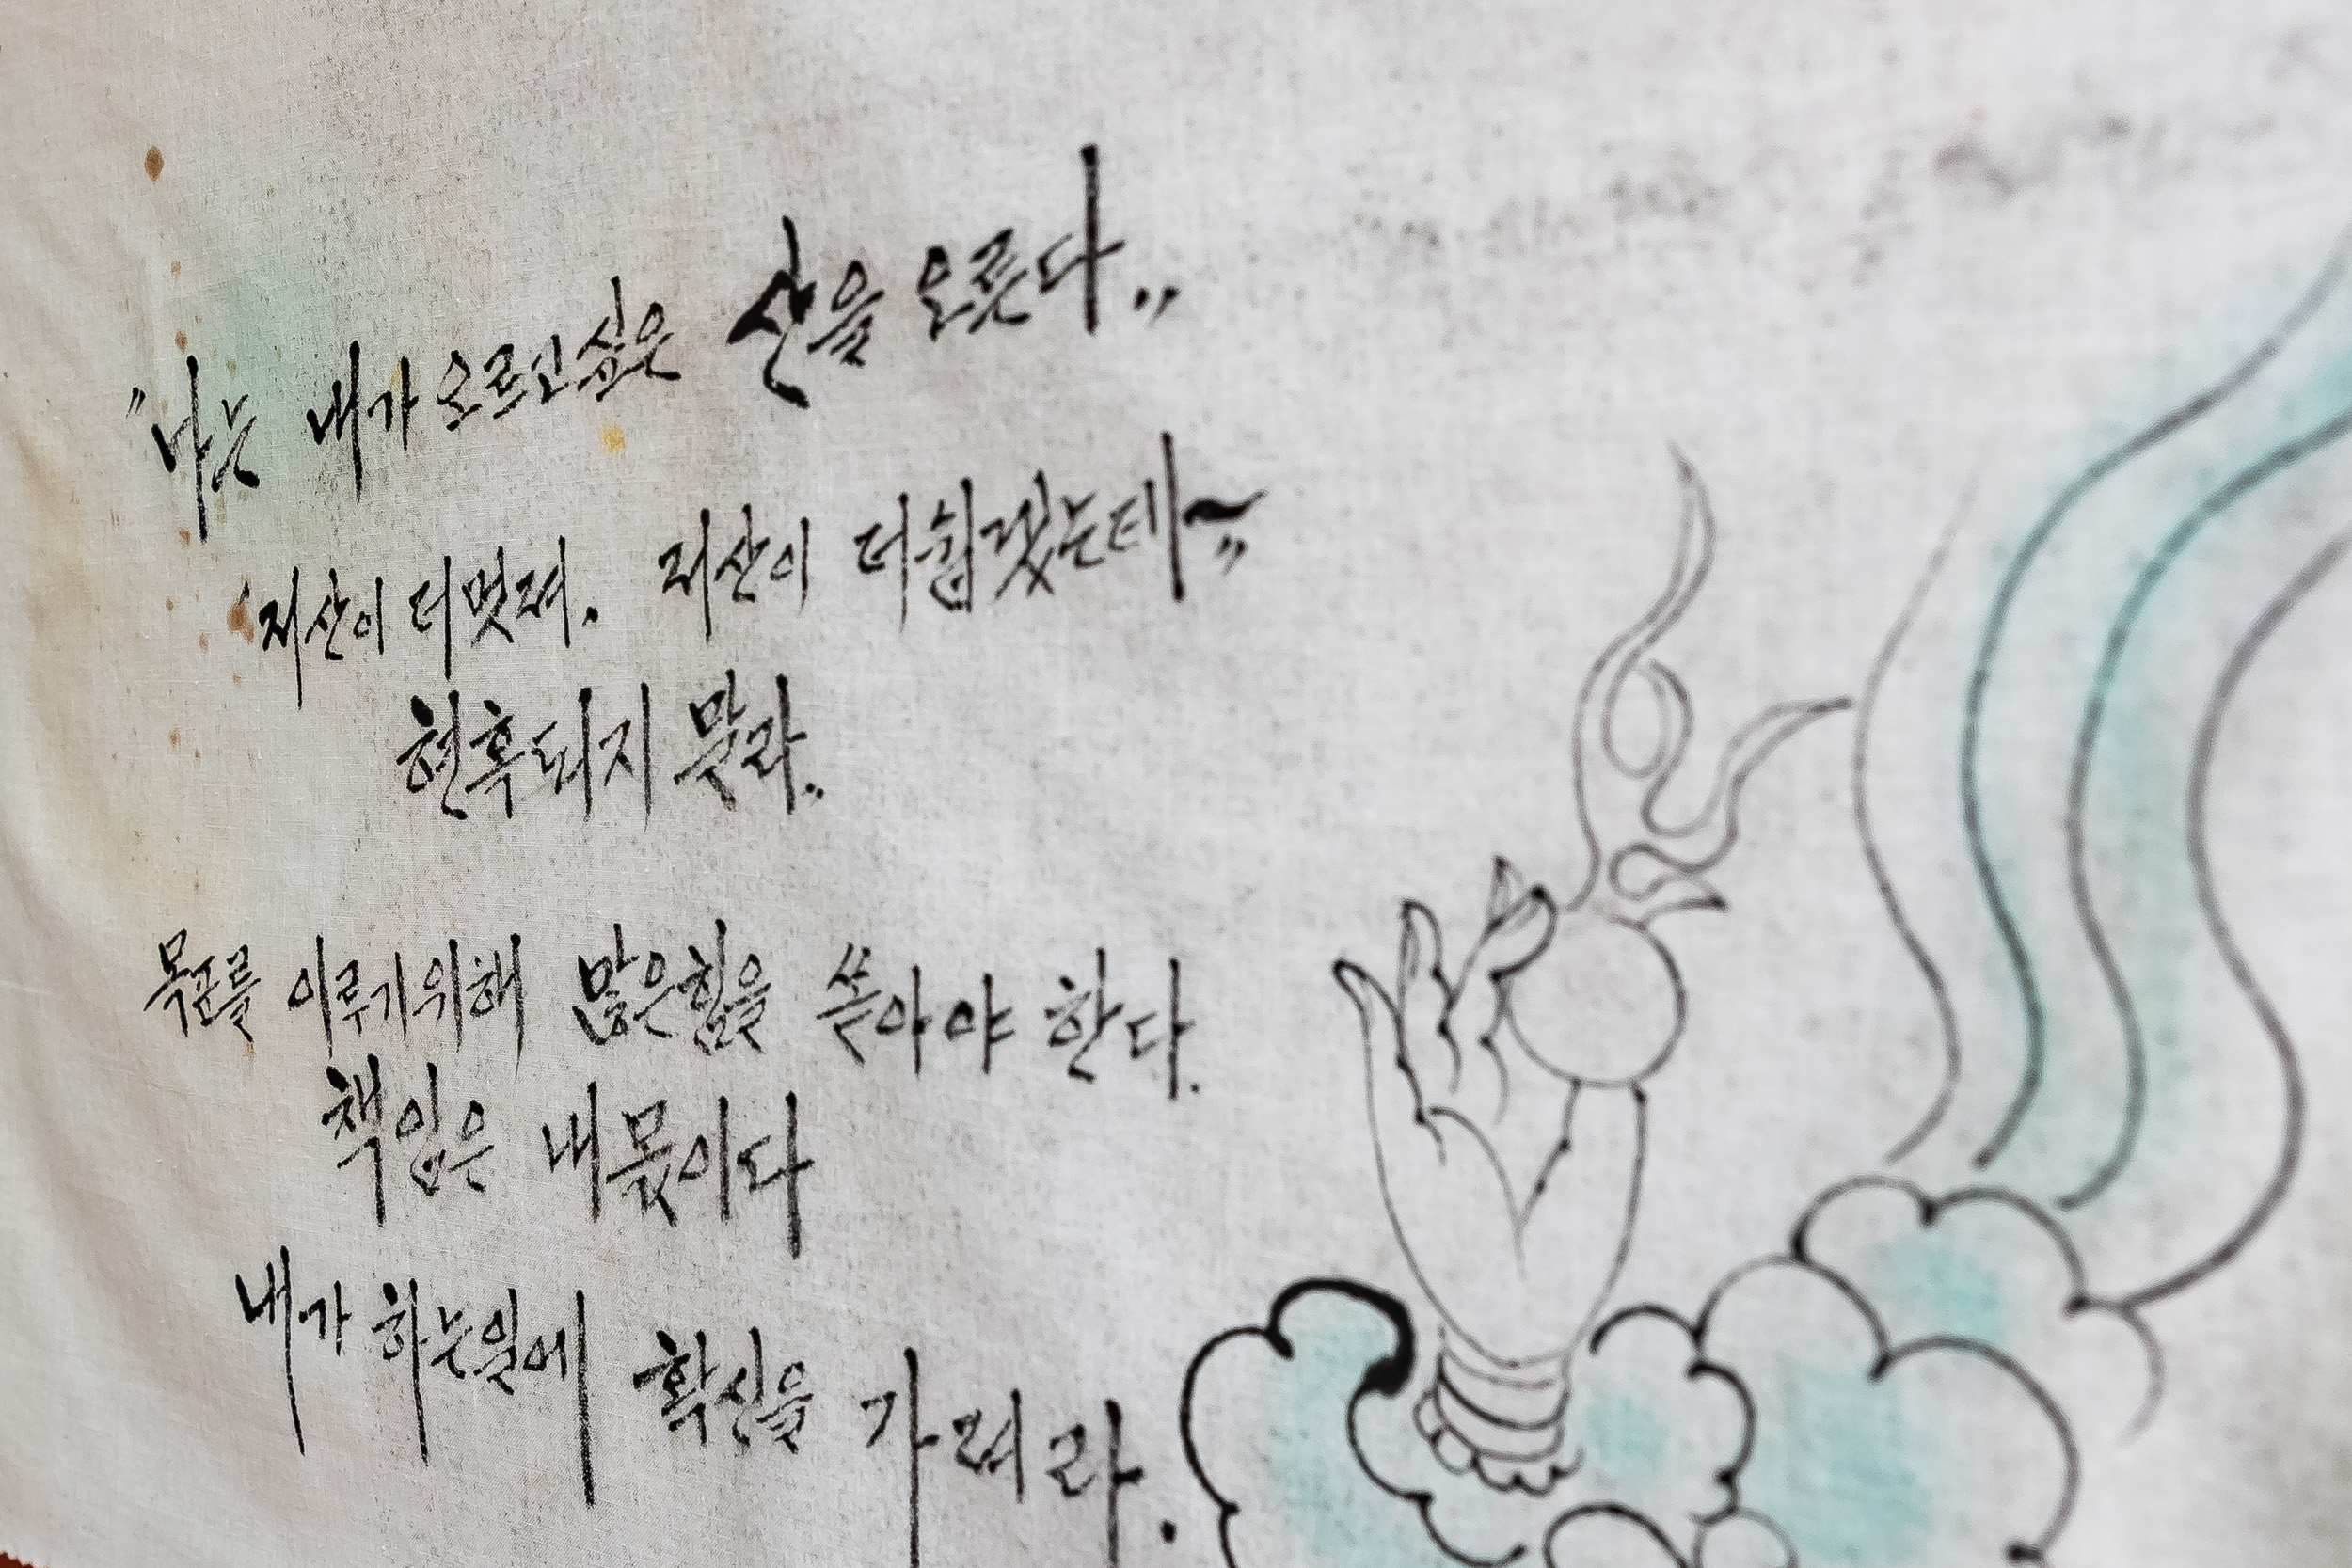 "나는 내가 오르고싶은 산을 오른다"
'저산이 더멋져. 저산이 더쉽겠는데~"
현혹되지 말라..
목표를 이루기위해 많은힘을 쏟아야 한다.
책임은 내몫이다
내가 하는일에 확신을 가져라.